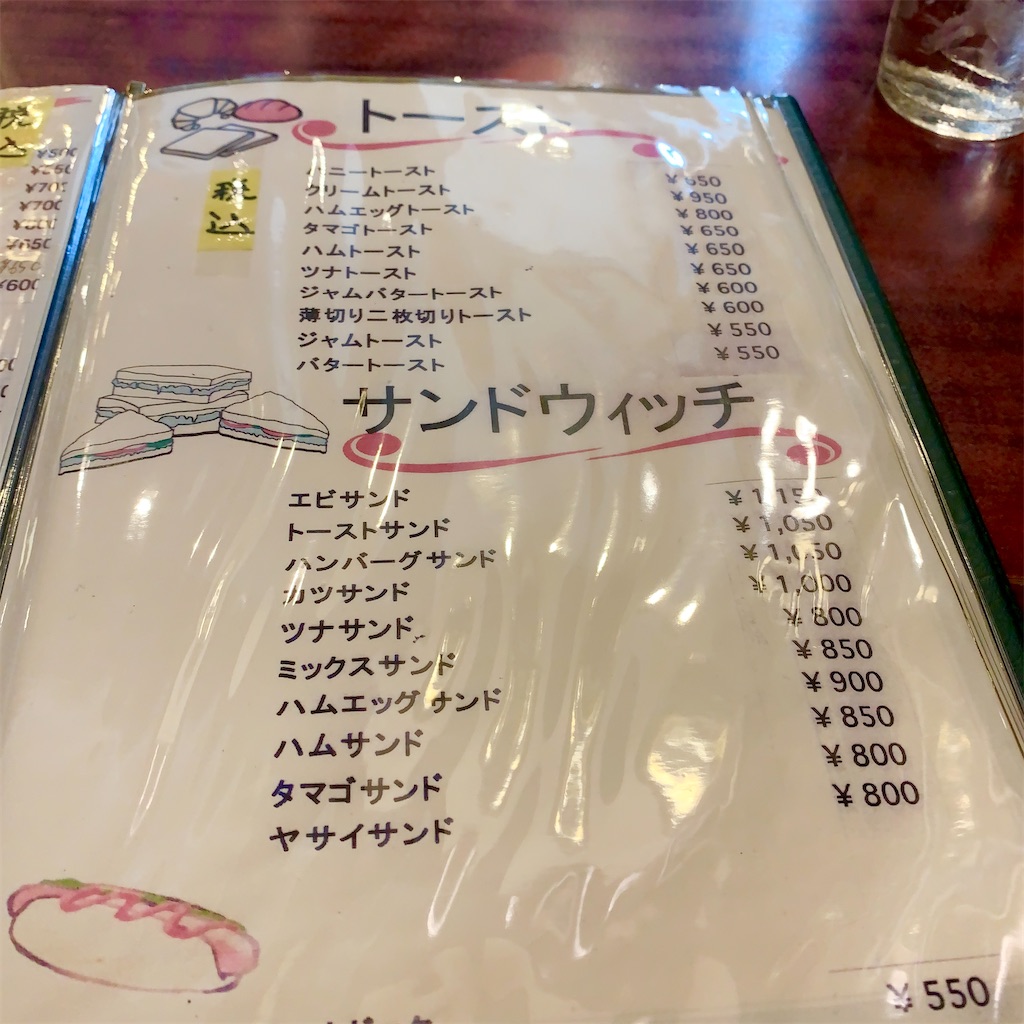 トースト
税込
ハニートースト ¥650
クリームトースト ¥950
ハムエッグトースト ¥800
タマゴトースト ¥650
ハムトースト ¥650
ツナトースト ¥650
ジャムバタートースト ¥600
薄切り二枚切りトースト ¥600
ジャムトースト ¥550
バタートースト ¥550
サンドウィッチ
エビサンド ¥1,150
トーストサンド ¥1,050
ハンバーグサンド ¥1,050
カツサンド ¥1,000
ツナサンド ¥800
ミックスサンド ¥850
ハムエッグサンド ¥900
ハムサンド ¥850
タマゴサンド ¥800
ヤサイサンド ¥800
¥550